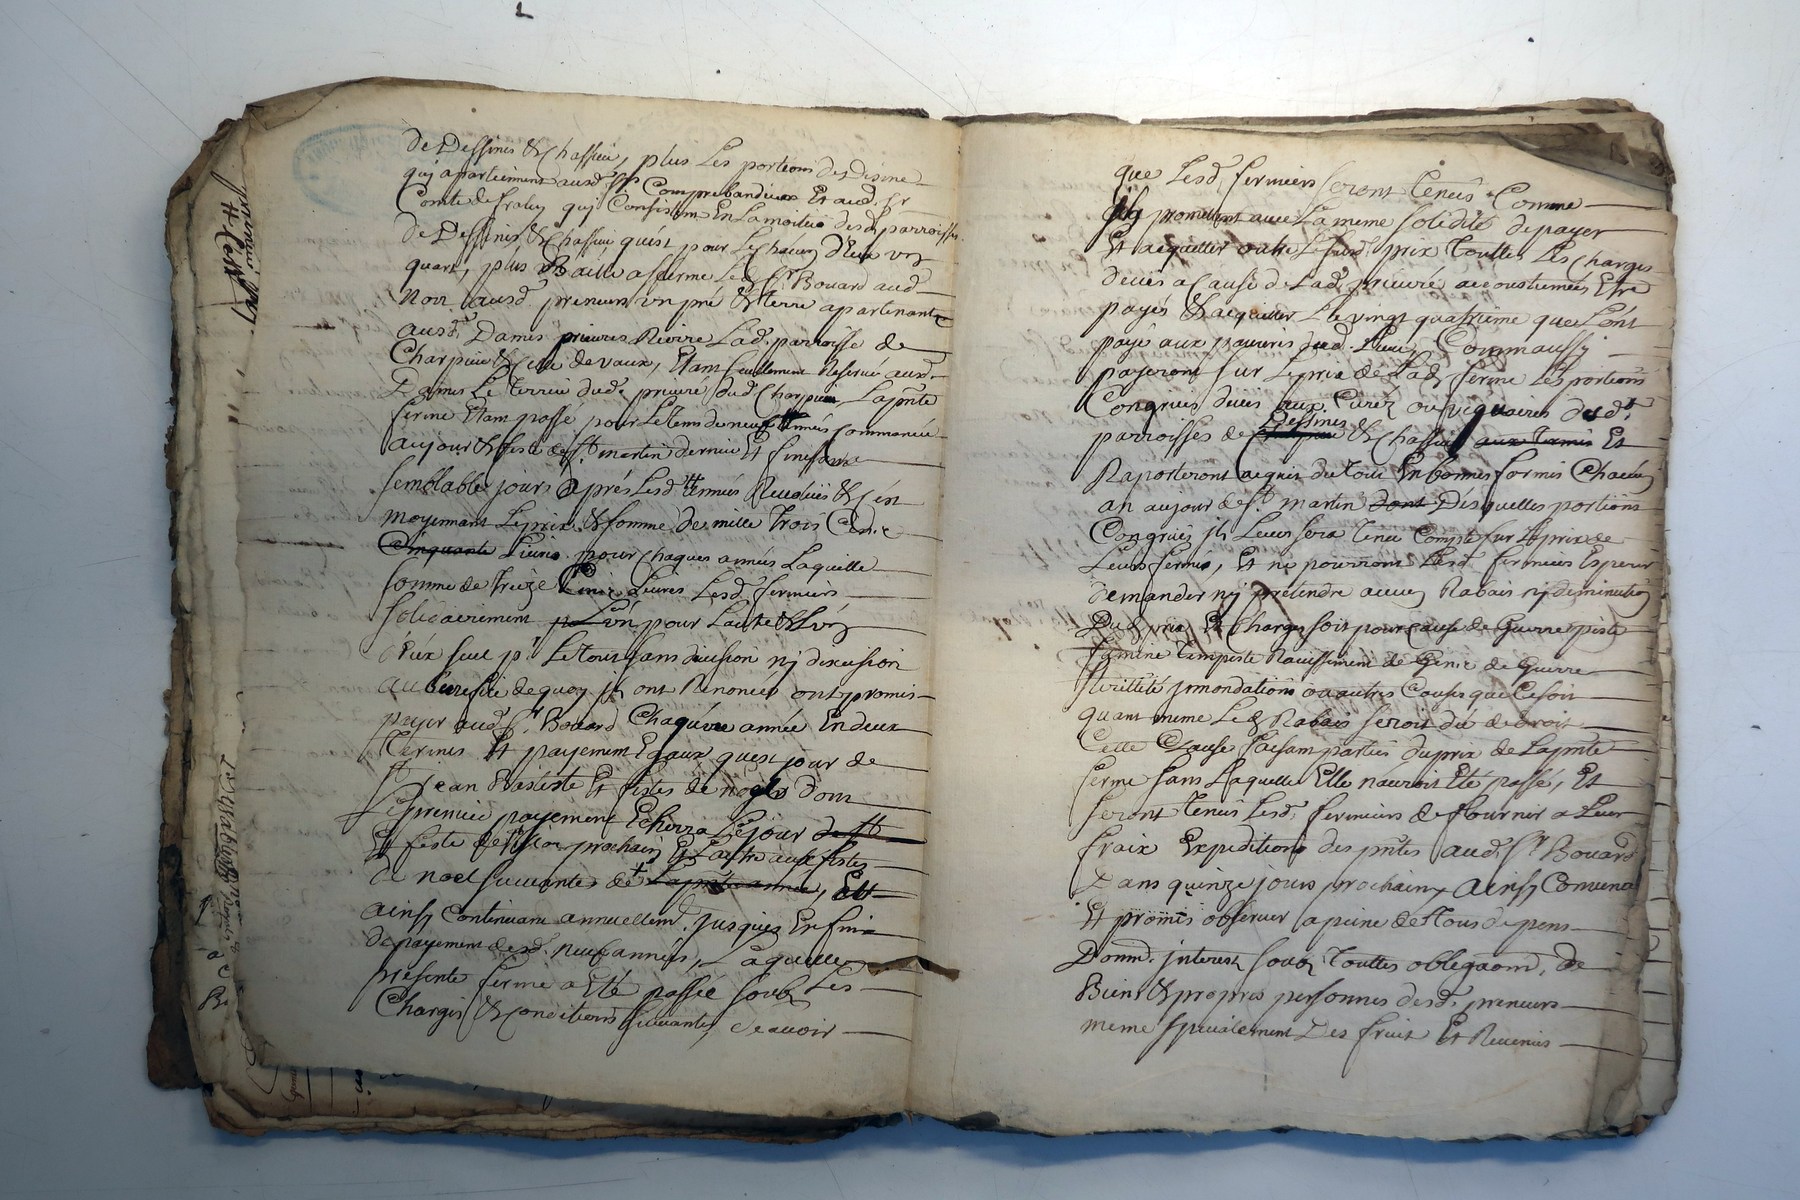 de Dessines & Chassieu, plus Les portions de disme
quj apartiennent ausd. srs Comprebandiers Et aud. sr
Comte de qui Consistent En La moitié desd. parroisses
de Dessines & Chassieu quest pour Le chacun d'Eux un
quart, plus Baille a ferme Led. Sr. Bouard aud.
Noir ausd. preneurs un pré & terre apartenants
ausd. Dames prieures Riere Lad. parroisse de
Charpieu & Celle de vaux, Etant seullement Reservé ausd.
Dames Le Terrier dud. prieuré dud. Charpieu, La pnte
ferme Etant passé pour Le tems de neuf années commancées
aujour & feste de St. martin dernier Et finissant a
semblable jours aprés Lesd. années Revolües &
moyennant Le prix & somme de mille Trois Cent
Cinquante Livres pour chaques années Laquelle
somme de Treize Cent Livres Lesd. fermiers
solidairement p L'un pour L'autre & L'un
d'Eux seul pr. Le Tout sans division nj discusion
au benefice de quoy jls ont Renoncés ont promis
payer aud. Sr. Bouard Chaqu'une année En deux
Termes Et payement Egaux quest jour de
St jean Baptiste Et festes de noel dont
Le premier payement Echerra Le jour de St
Et feste de prochain Et L'autre aux festes
de noel suivantes de La pnte année, Et
ainsy Continuant annuellemt. jusques En fin
de payement desd. neuf années, Laquelle
presente ferme a Eté passée soubz Les
Charges & Conditions suivantes, Scavoir
que Lesd. fermiers seront Tenus Comme
jls promettent avec La meme solidité de payer
Et acquitter outre Le susd. prix Touttes Les charges
deües a Cause de Lad. prieuré accoustumées Estre
payés & acquitter Le vingt quatrieme que L'ont
paye aux pauvres dud. Lieu, Comm'aussj
payeront sur Le prix de Lad. ferme Les portions
Congrues deües aux Curez ou viquaires desdt.
Dessines
parroisses de Charpieu & Chassieu aux Termes Et
Raporteront acquis du tout En bonnes formes Chacun
an aujour de St. martin dont Desquelles portions
Congrües jls Leur sera Tenu Compte sur Le prix de
Leurs fermes, Et ne pourront Lesd. fermiers Esperer
demander nj pretendre aucun Rabais nj diminution
Dud. prix Et Charges soit pour cause de Guerre peste
famine Tempeste Ravissement de Genie de Guerre
sterilleté jnnondations ou autres Causes que Ce soit
quant meme Led. Rabais seroit dû de droit
Cette Clause faisant parties du prix de La pnte
ferme sans Laquelle Elle n'auroit Eté passé, Et
seront Tenus Lesd. fermiers de fournir a Leur
fraix Expeditions des pntes aud. Sr. Bouard
Dans quinze jours prochain, Ainsy Convenu
Et promis observer a peine de Tous depens
Domm. jnterest soubz Touttes obligaons, de
Biens & propres personnes desd. preneurs
meme specialement Des fruit Et Revenus